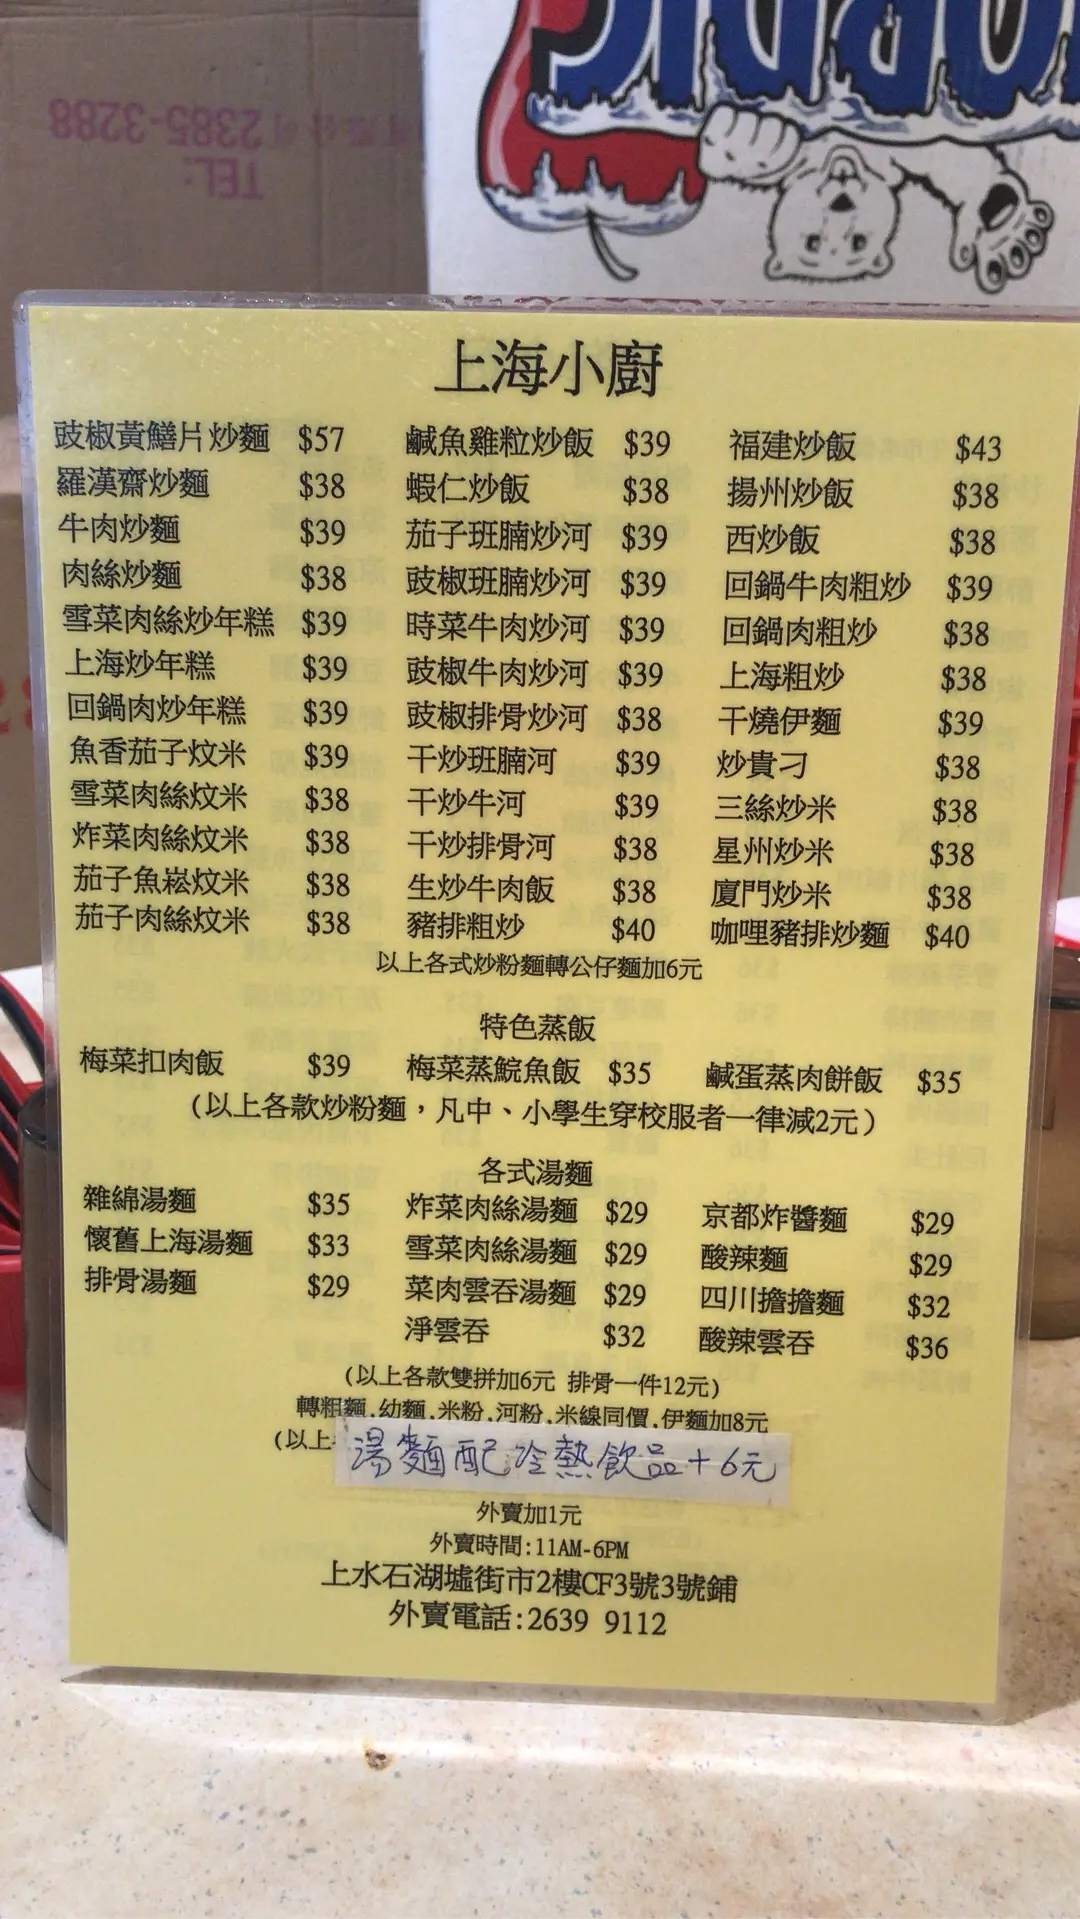 2385-3288
TEL:
上海小廚
豉椒黃鱔片炒麵 $57 鹹魚雞粒炒飯 $39 福建炒飯 $43
羅漢齋炒麵 $38 蝦仁炒飯 $38 揚州炒飯 $38
牛肉炒麵 $39 茄子班腩炒河 $39 西炒飯 $38
肉絲炒麵 $38 豉椒班腩炒河 $39 回鍋牛肉粗炒 $39
雪菜肉絲炒年糕 $39 時菜牛肉炒河 $39 回鍋肉粗炒 $38
上海炒年糕 $39 豉椒牛肉炒河 $39 上海粗炒 $38
回鍋肉炒年糕 $39 豉椒排骨炒河 $38 干燒伊麵 $39
魚香茄子炆米 $39 干炒班腩河 $39 炒貴刁 $38
雪菜肉絲炆米 $38 干炒牛河 $39 三絲炒米 $38
炸菜肉絲炆米 $38 干炒排骨河 $38 星州炒米 $38
茄子魚崧炆米 $38 生炒牛肉飯 $38 廈門炒米 $38
茄子肉絲炆米 $38 豬排粗炒 $40 咖哩豬排炒麵 $40
以上各式炒粉麵轉公仔麵加6元
特色蒸飯
梅菜扣肉飯 $39 梅菜蒸鯇魚飯 $35 鹹蛋蒸肉餅飯 $35
(以上各款炒粉麵，凡中、小學生穿校服者一律減2元)
各式湯麵
雜綿湯麵 $35 炸菜肉絲湯麵 $29 京都炸醬麵 $29
懷舊上海湯麵 $33 雪菜肉絲湯麵 $29 酸辣麵 $29
排骨湯麵 $29 菜肉雲吞湯麵 $29 四川擔擔麵 $32
淨雲吞 $32 酸辣雲吞 $36
(以上各款雙拼加6元 排骨一件12元)
轉粗麵,幼麵,米粉,河粉,米線同價,伊麵加8元
(以上
湯麵配冷熱飲品+6元
外賣加1元
外賣時間:11AM-6PM
上水石湖墟街市2樓CF3號3號鋪
外賣電話:2639 9112